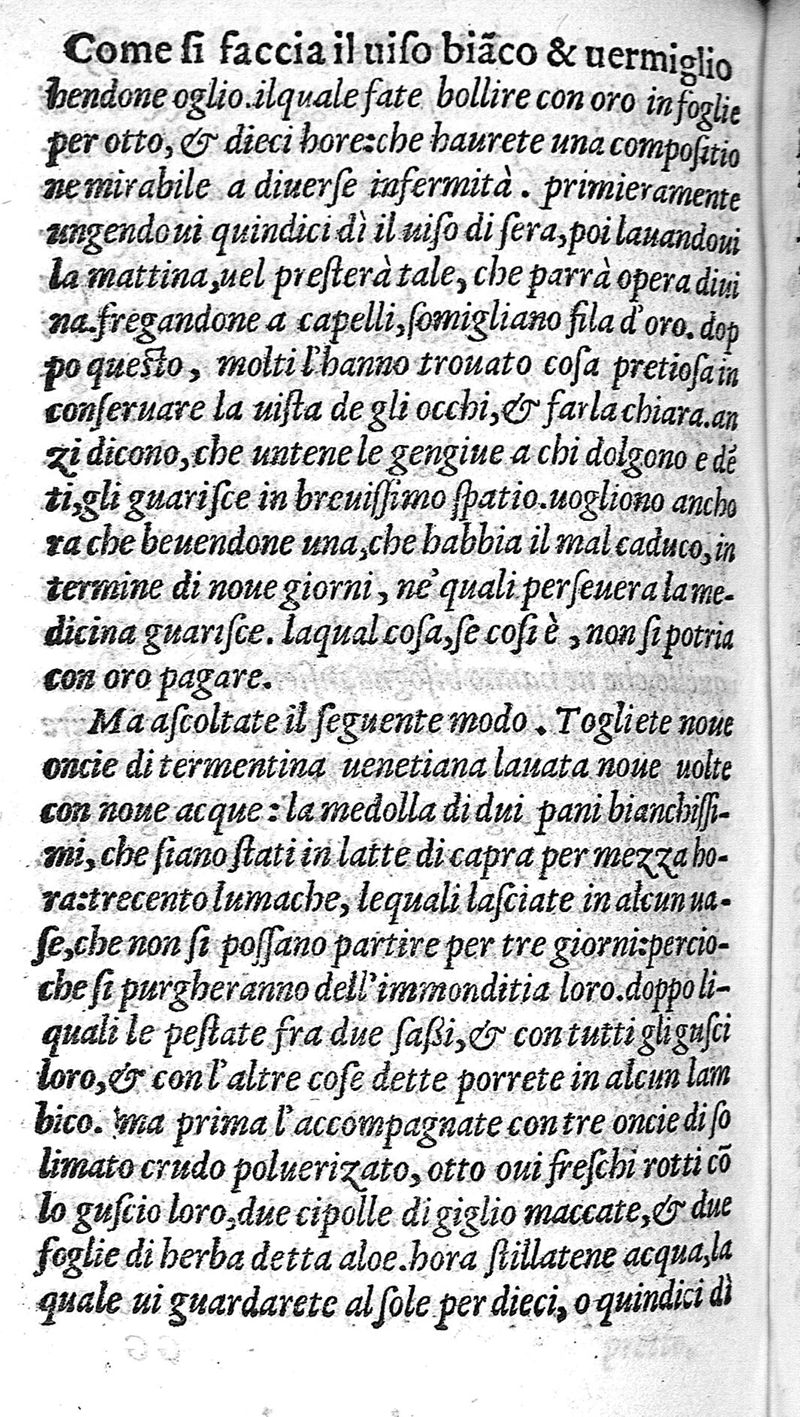 Come ſi faccia il uiſo biãco & uermiglio
hendone oglio. ilquale fate bollire con oro in foglie
per otto, & dieci hore: che haurete una compoſitio
ne mirabile a diuerſe infermità. primieramente
ungendoui quindici dì il uiſo di ſera, poi lauandoui
la mattina, uel preſterà tale, che parrà opera diui
na. fregandone a capelli, ſomigliano fila d'oro. dop
po queſto, molti l'hanno trouato coſa pretioſa in
conſeruare la uiſta de gli occhi, & farla chiara. an
zi dicono, che untene le gengiue a chi dolgono e dẽ
ti, gli guariſce in breuiſſimo ſpatio. uogliono ancho
ra che beuendone una, che habbia il mal caduco, in
termine di noue giorni, ne' quali perſeuera la me-
dicina guariſce. laqual coſa, ſe coſi è, non ſi potria
con oro pagare.
Ma aſcoltate il ſeguente modo. Togliete noue
oncie di termentina uenetiana lauata noue uolte
con noue acque: la medolla di dui pani bianchiſſi-
mi, che ſiano ſtati in latte di capra per mezza ho-
ra: trecento lumache, lequali laſciate in alcun ua-
ſe, che non ſi poſſano partire per tre giorni: percio-
che ſi purgheranno dell'immonditia loro. doppo li-
quali le peſtate fra due ſaßi, & con tutti gli guſci
loro, & con l'altre coſe dette porrete in alcun lam
bico. ma prima l'accompagnate con tre oncie di ſo
limato crudo poluerizato, otto oui freſchi rotti cõ
lo guſcio loro, due cipolle di giglio maccate, & due
foglie di herba detta aloe. hora ſtillatene acqua, la
quale ui guardarete al ſole per dieci, o quindici dì